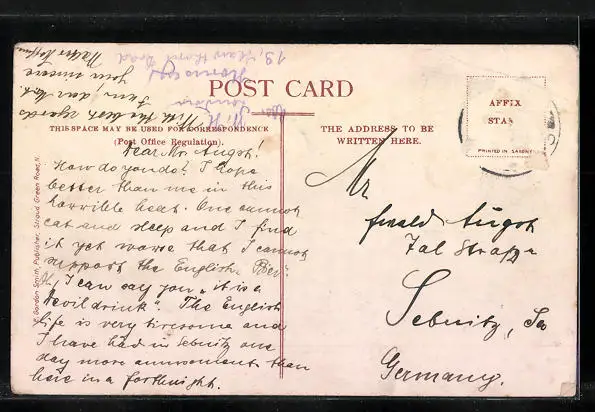 POST CARD
THIS SPACE MAY BE USED FOR CORRESPONDENCE
(Post Office Regulation).
THE ADDRESS TO BE
WRITTEN HERE.
AFFIX
STA
PRINTED IN SAXONY
Gordon Smith, Publisher, Stroud Green Road, N.
Dear Mr. August!
How do you do? I hope
better than me in this
horrible heat. One cannot
eat and sleep and I find
it yet worse that I cannot
support the English "Beer".
I can say you "it is a
devil drink". The English
life is very tiresome and
I have had in Sebnitz one
day more amusement than
here in a forthnight.
With the best regards
I am, dear
your sincere
19,
Road
London
Mr
Ewald August
Tal Strasse
Sebnitz, Sa
Germany.